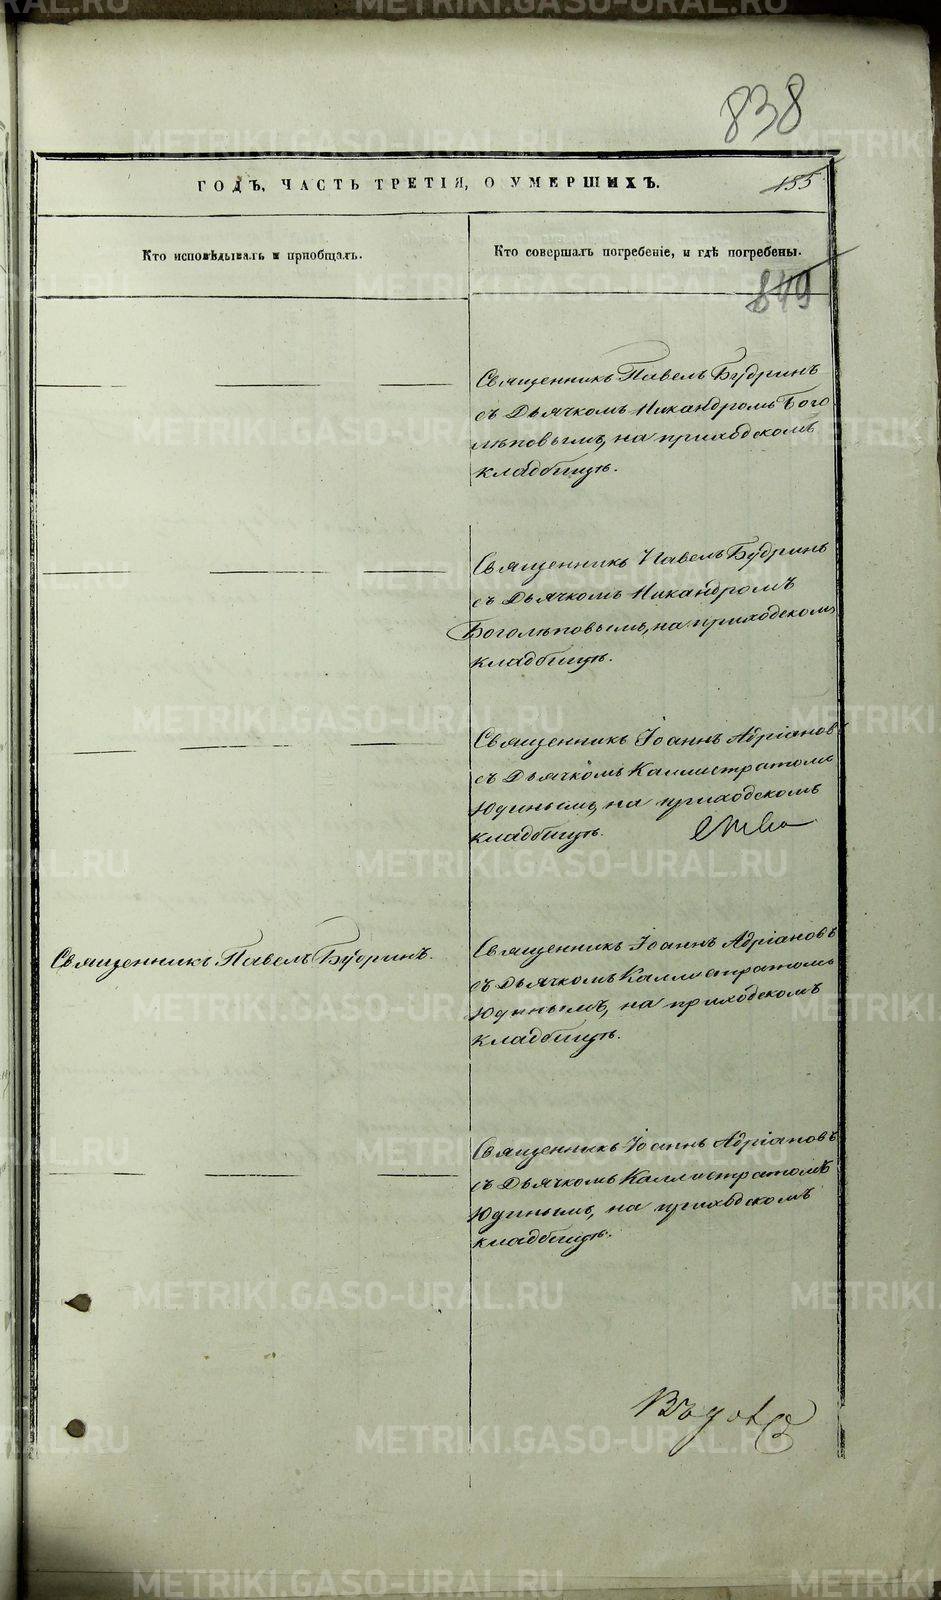 838
ГОДЪ, ЧАСТЬ ТРЕТІЯ, О УМЕРШИХЪ.
155
Кто исповѣдывалъ и пріобщалъ.
Кто совершалъ погребеніе, и гдѣ погребены.
849
Священникъ Павелъ Будринъ
съ Дьячкомъ Никандромъ Бого
лѣповымъ, на приходскомъ
кладбищѣ.
Священникъ Павелъ Будринъ
съ Дьячкомъ Никандромъ
Боголѣповымъ, на приходскомъ
кладбищѣ.
Священникъ Іоаннъ Адріановъ
съ Дьячкомъ Каллистратомъ
Юдинымъ, на приходскомъ
кладбищѣ.
Священникъ Павелъ Будринъ.
Священникъ Іоаннъ Адріановъ
съ Дьячкомъ Каллистратомъ
Юдинымъ, на приходскомъ
кладбищѣ.
Священникъ Іоаннъ Адріановъ
съ Дьячкомъ Каллистратомъ
Юдинымъ, на приходскомъ
кладбищѣ.
METRIKI.GASO-URAL.RU